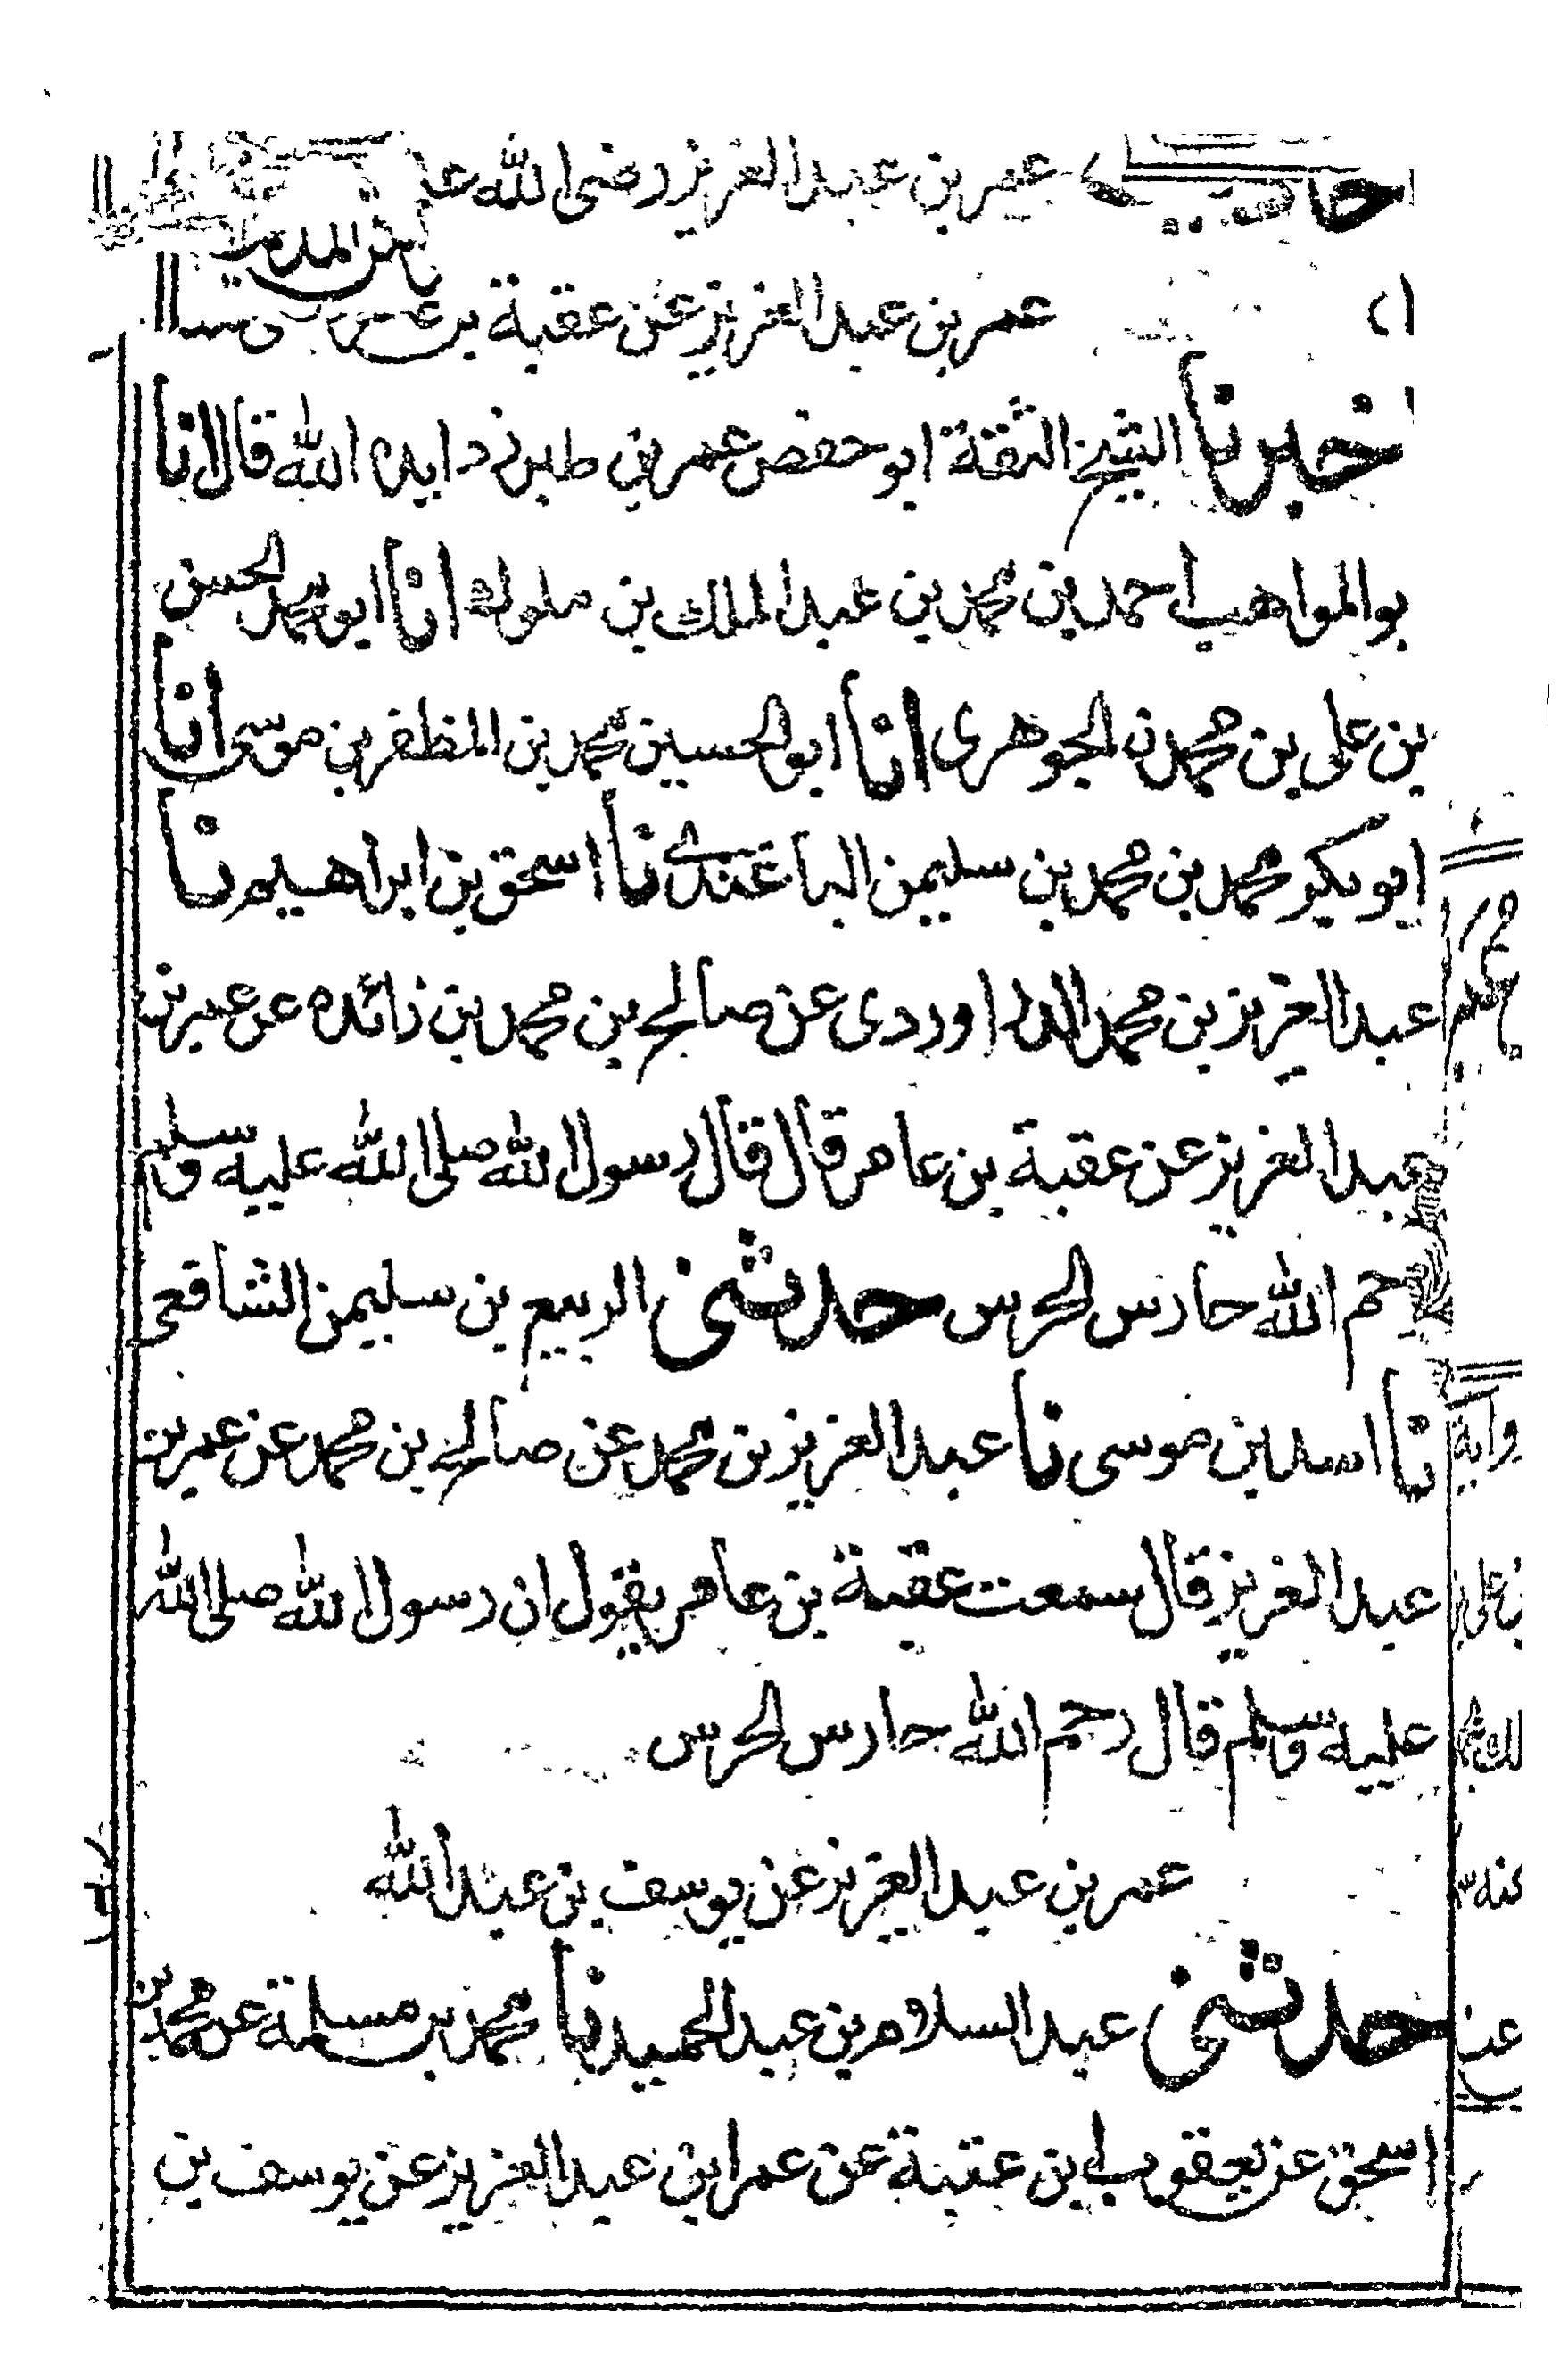 عمر بن عبد العزيز رضى الله
عمر بن عبد العزيز عن عقبة بن
خبرنا الشيخ الثقة ابو حفص عمر بن طبرزد ايده الله قال انا
بو المواهب احمد بن محمد بن عبد الملك بن ملوك انا ابو محمد الحسن
بن على بن محمد الجوهرى انا ابو الحسين محمد بن المظفر بن موسى انا
ابو بكر محمد بن محمد بن سليمن الباغندى نا اسحق بن ابراهيم نا
عبد العزيز بن محمد الدراوردى عن صالح بن محمد بن زائده عن عمر بن
عبد العزيز عن عقبة بن عامر قال قال رسول الله صلى الله عليه وسلم
رحم الله حارس الحرس حدثنى الربيع بن سليمن الشافعى
نا اسد بن موسى نا عبد العزيز بن محمد عن صالح بن محمد عن عمر بن
عبد العزيز قال سمعت عقبة بن عامر يقول ان رسول الله صلى الله
عليه وسلم قال رحم الله حارس الحرس
عمر بن عبد العزيز عن يوسف بن عبد الله
حدثنى عبد السلام بن عبد الحميد نا محمد بن مسلمة عن محمد بن
اسحق عن يعقوب بن عتبة عن عمر ابن عبد العزيز عن يوسف بن